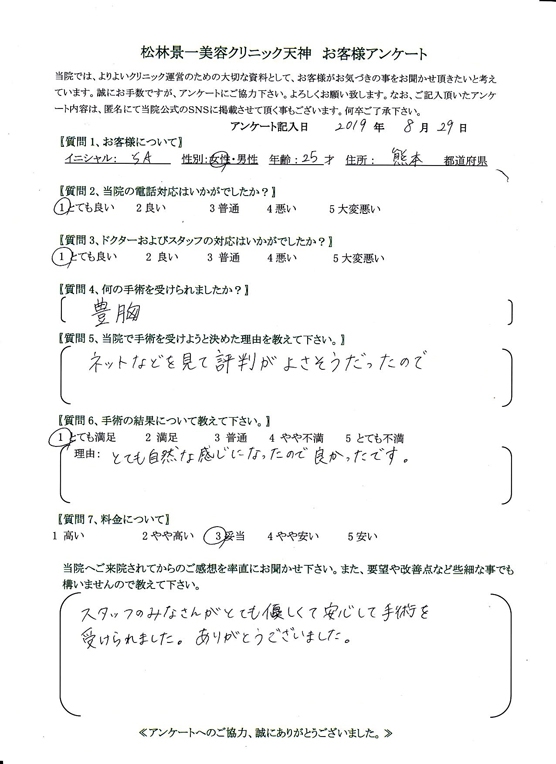 松林景一美容クリニック天神　お客様アンケート
当院では、よりよいクリニック運営のための大切な資料として、お客様がお気づきの事をお聞かせ頂きたいと考え
ています。誠にお手数ですが、アンケートにご協力下さい。よろしくお願い致します。なお、ご記入頂いたアンケ
ート内容は、匿名にて当院公式のSNSに掲載させて頂く事もございます。何卒ご了承下さい。
アンケート記入日　2019 年　8 月 29 日
〖質問1、お客様について〗
イニシャル：　SA　性別：女性・男性　年齢：25 才　住所：　熊本　都道府県
〖質問2、当院の電話対応はいかがでしたか？〗
1 とても良い　2 良い　3 普通　4 悪い　5 大変悪い
〖質問3、ドクターおよびスタッフの対応はいかがでしたか？〗
1 とても良い　2 良い　3 普通　4 悪い　5 大変悪い
〖質問4、何の手術を受けられましたか？〗
豊胸
〖質問5、当院で手術を受けようと決めた理由を教えて下さい。〗
ネットなどを見て評判がよさそうだったので
〖質問6、手術の結果について教えて下さい。〗
1 とても満足　2 満足　3 普通　4 やや不満　5 とても不満
理由：　とても自然な感じになったので良かったです。
〖質問7、料金について〗
1 高い　2 やや高い　3 妥当　4 やや安い　5 安い
当院へご来院されてからのご感想を率直にお聞かせ下さい。また、要望や改善点など些細な事でも
構いませんので教えて下さい。
スタッフのみなさんがとても優しくて安心して手術を
受けられました。ありがとうございました。
≪アンケートへのご協力、誠にありがとうございました。≫